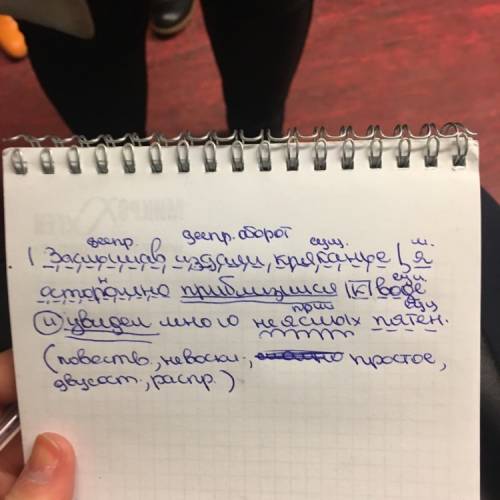 деепр. деепр. оборот сущ. м.
1. Заслышав издали кряканье, я
н сущ.
осторожно приблизился к воде
прил сущ
и увидел много неясных пятен.
(повеств., невоскл., простое,
двусост., распр.)